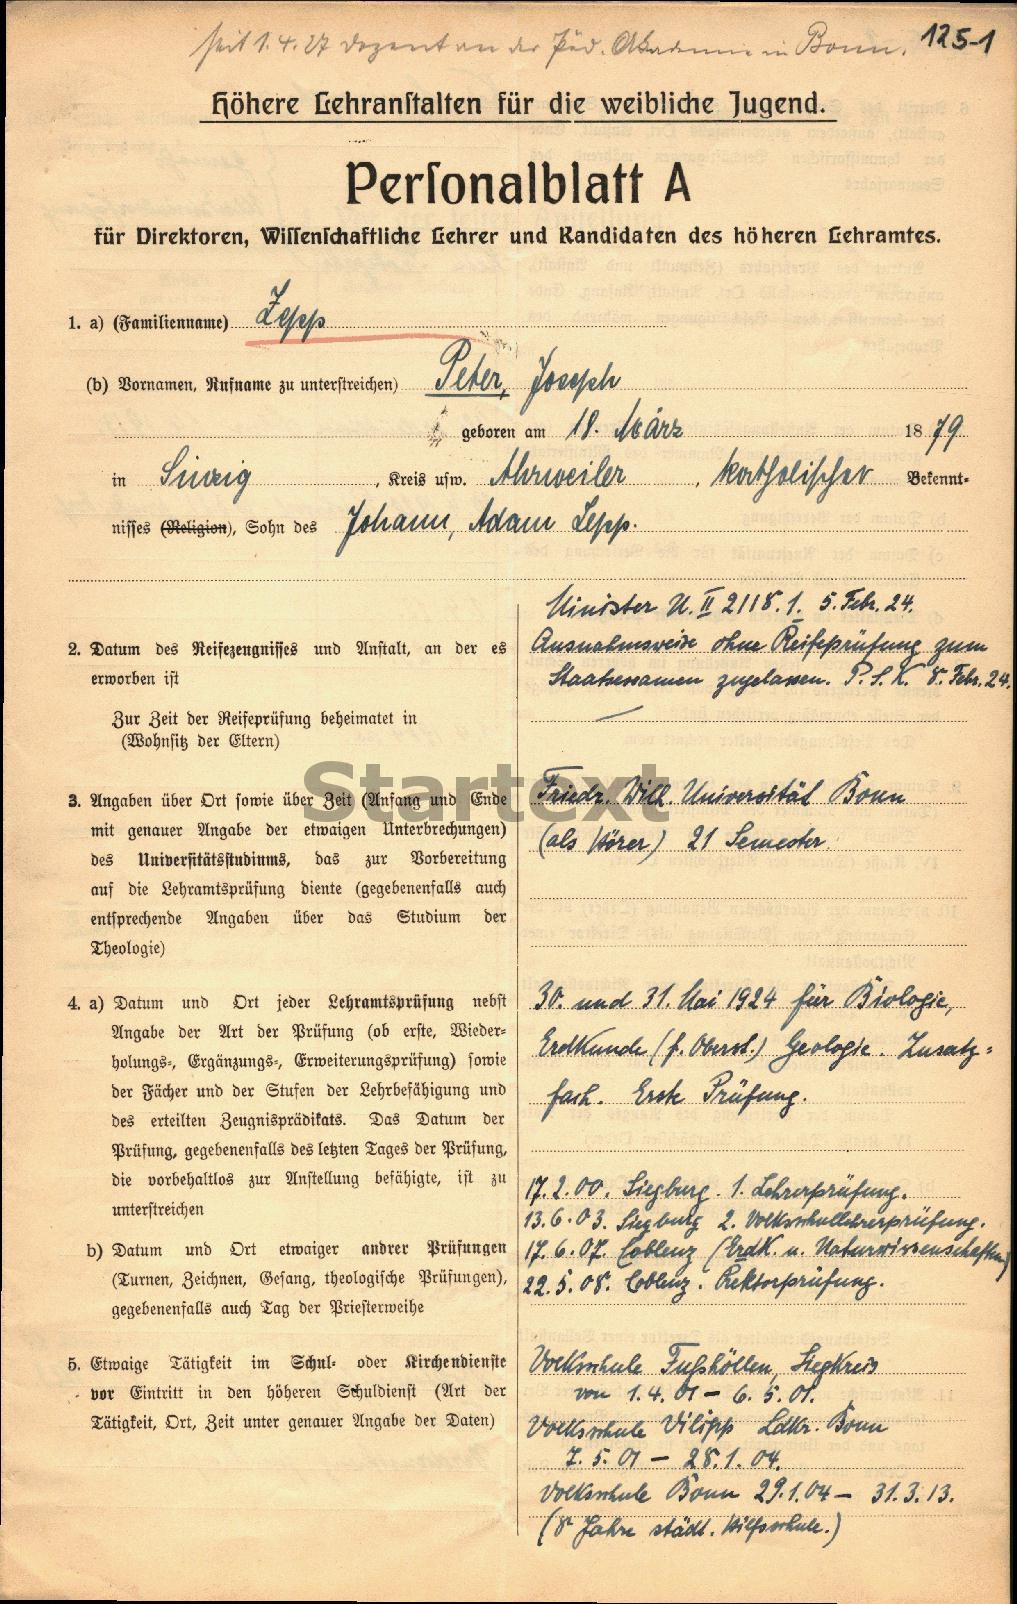 seit 1.4.27 Dozent an der Päd. Akademie in Bonn.
125-1
Höhere Lehranstalten für die weibliche Jugend.
Personalblatt A
für Direktoren, Wissenschaftliche Lehrer und Kandidaten des höheren Lehramtes.
1. a) (Familienname) Zepp
(b) Vornamen, Rufname zu unterstreichen) Peter, Joseph
geboren am 18. März 1879
in Sinzig, Kreis usw. Ahrweiler, katholischer Bekennt-
nisses (Religion), Sohn des Johann, Adam Zepp.
Minister U. II 2118.1. 5. Febr. 24.
2. Datum des Reifezeugnisses und Anstalt, an der es Ausnahmsweise ohne Reifeprüfung zum
erworben ist Staatsexamen zugelassen. P.S.K. 8. Febr. 24.
Zur Zeit der Reifeprüfung beheimatet in —
(Wohnsitz der Eltern)
Startext
3. Angaben über Ort sowie über Zeit (Anfang und Ende Friedr. Wilh. Universität Bonn
mit genauer Angabe der etwaigen Unterbrechungen) (als Hörer) 21 Semester.
des Universitätsstudiums, das zur Vorbereitung
auf die Lehramtsprüfung diente (gegebenenfalls auch
entsprechende Angaben über das Studium der
Theologie)
4. a) Datum und Ort jeder Lehramtsprüfung nebst 30. und 31. Mai 1924 für Biologie,
Angabe der Art der Prüfung (ob erste, Wieder- Erdkunde (f. Oberst.) Geologie. Zusatz-
holungs-, Ergänzungs-, Erweiterungsprüfung) sowie
der Fächer und der Stufen der Lehrbefähigung und fach. Erste Prüfung.
des erteilten Zeugnisprädikats. Das Datum der
Prüfung, gegebenenfalls des letzten Tages der Prüfung,
die vorbehaltlos zur Anstellung befähigte, ist zu 17.2.00. Siegburg. 1. Lehrerprüfung.
unterstreichen 13.6.03. Siegburg 2. Volksschullehrerprüfung.
b) Datum und Ort etwaiger andrer Prüfungen 17.6.07. Coblenz (Erdk. u. Naturwissenschaften)
(Turnen, Zeichnen, Gesang, theologische Prüfungen), 22.5.08. Coblenz. Rektorprüfung.
gegebenenfalls auch Tag der Priesterweihe
5. Etwaige Tätigkeit im Schul- oder Kirchendienste Volksschule Fußhöllen, Siegkreis
vor Eintritt in den höheren Schuldienst (Art der von 1.4.01 – 6.5.01.
Tätigkeit, Ort, Zeit unter genauer Angabe der Daten) Volksschule Vilipp Ldkr. Bonn
7.5.01 – 28.1.04.
Volksschule Bonn 29.1.04 – 31.3.13.
(8 Jahre städt. Hilfsschule.)